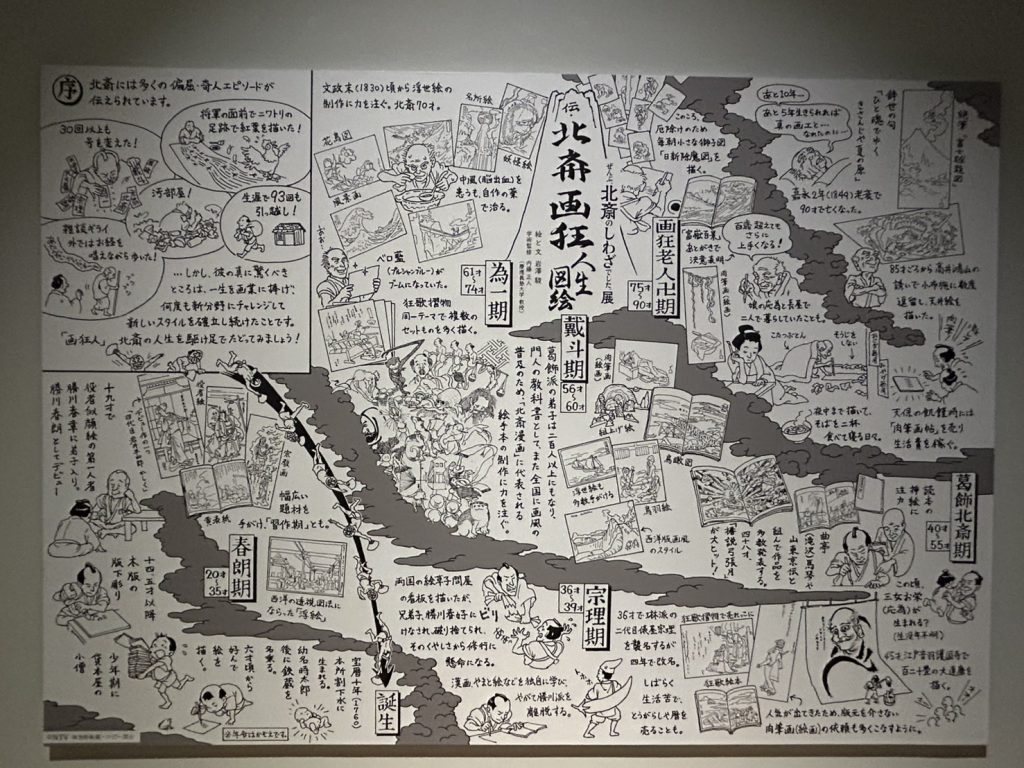 序
北斎には多くの偏屈・奇人エピソードが
伝えられています。
30回以上も
号を変えた!
将軍の面前でニワトリの
足跡で紅葉を描いた!
汚部屋!
生涯で93回も
引っ越し!
雑談ギライ
外ではお経を
唱えながら歩いた!
…しかし、彼の真に驚くべき
ところは、一生を画業に捧げ、
何度も新分野にチャレンジして
新しいスタイルを確立し続けたことです。
「画狂人」北斎の人生を駆け足でたどってみましょう!
伝
北斎画狂人生図絵
ぜんぶ北斎のしわざでした展
絵と文 岩澤駿
誕生
宝暦十年(1760)
本所割下水に
生まれる。
幼名時太郎
後に鉄蔵を
名乗る。
六才頃から
好んで
絵を
描く。
※年令はかぞえです。
少年期に
貸本屋の
小僧
十四、五才以降
木版の
版下彫り
十九才で
役者似顔絵の第一人者
勝川春章に弟子入り。
勝川春朗としてデビュー
春朗期
20才〜35才
役者絵
黄表紙
幅広い
題材を
手がけ、「習作期」とも。
西洋の透視図法に
ならった「浮絵」
両国の絵草子問屋
の看板を描いたが、
兄弟子、勝川春好にビリ
けなされ、破り捨てられ、
そのくやしさから修行に
懸命になる。
漫画、やまと絵などを独自に学び、
やがて勝川派を
離脱する。
宗理期
36才〜39才
36才で琳派の
二代目俵屋宗理
を襲名するが
四年で改名。
しばらく
生活苦で、
とうがらしや暦を
売ることも。
狂歌摺物で売れっこに
狂歌絵本
人気が出てきたため、版元を介さない
肉筆画(絵画)の依頼も多くこなすように。
葛飾北斎期
40才〜55才
読本の
挿絵に
注力
曲亭
(滝沢)馬琴や
山東京伝と
組んで作品を
多数発表する。
四十八才、
椿説弓張月
が大ヒット!
この頃、
三女お栄
(応為)が
生まれる?
(生没年不明)
45才 江戸音羽護国寺で
百二十畳の大達磨を
描く。
戴斗期
56才〜60才
葛飾派の弟子は二百人以上にもなり、
門人の教科書として、また全国に画風の
普及のため、「北斎漫画」に代表される
絵手本の制作に力を注ぐ。
肉筆画(絵画)
組上げ絵
鳥瞰図
浮世絵も
多数手がける
鳥羽絵
西洋版画風
のスタイル
為一期
61才〜74才
文政末(1830)頃から浮世絵の
制作に力を注ぐ。北斎70才。
花鳥図
名所絵
妖怪絵
風景画
中風(脳出血)を
患うも、自作の薬
で治る。
ベロ藍
(プルシャンブルー)が
ブームになっていた。
狂歌摺物
同一テーマで複数の
セットものを多く描く。
画狂老人卍期
75才〜90才
このころ、
厄除けのため
毎朝小さな獅子図
「日新除魔図」を
描く。
富嶽百景
あとがきで
決意表明
百歳超えても
さらに
上手くなる!
肉筆画(絵画)
娘の応為と長屋で
二人で暮らしていたことも。
こたつぶとん
そうじを
しない
夜中まで描いて、
そばを二杯
食べて寝る日々。
天保の飢饉時には
「肉筆画帖」を売り
生活費を稼ぐ。
85才ごろから高井鴻山の
誘いで小布施に数度
逗留し、天井絵を
描いた。
あと10年…
あと5年生きられれば
真の画工と…
なれたのに…
嘉永2年(1849)老衰で
90才で亡くなった。
辞世の句
「ひと魂でゆく
きさんじや夏の原」
絶筆・富士越龍図